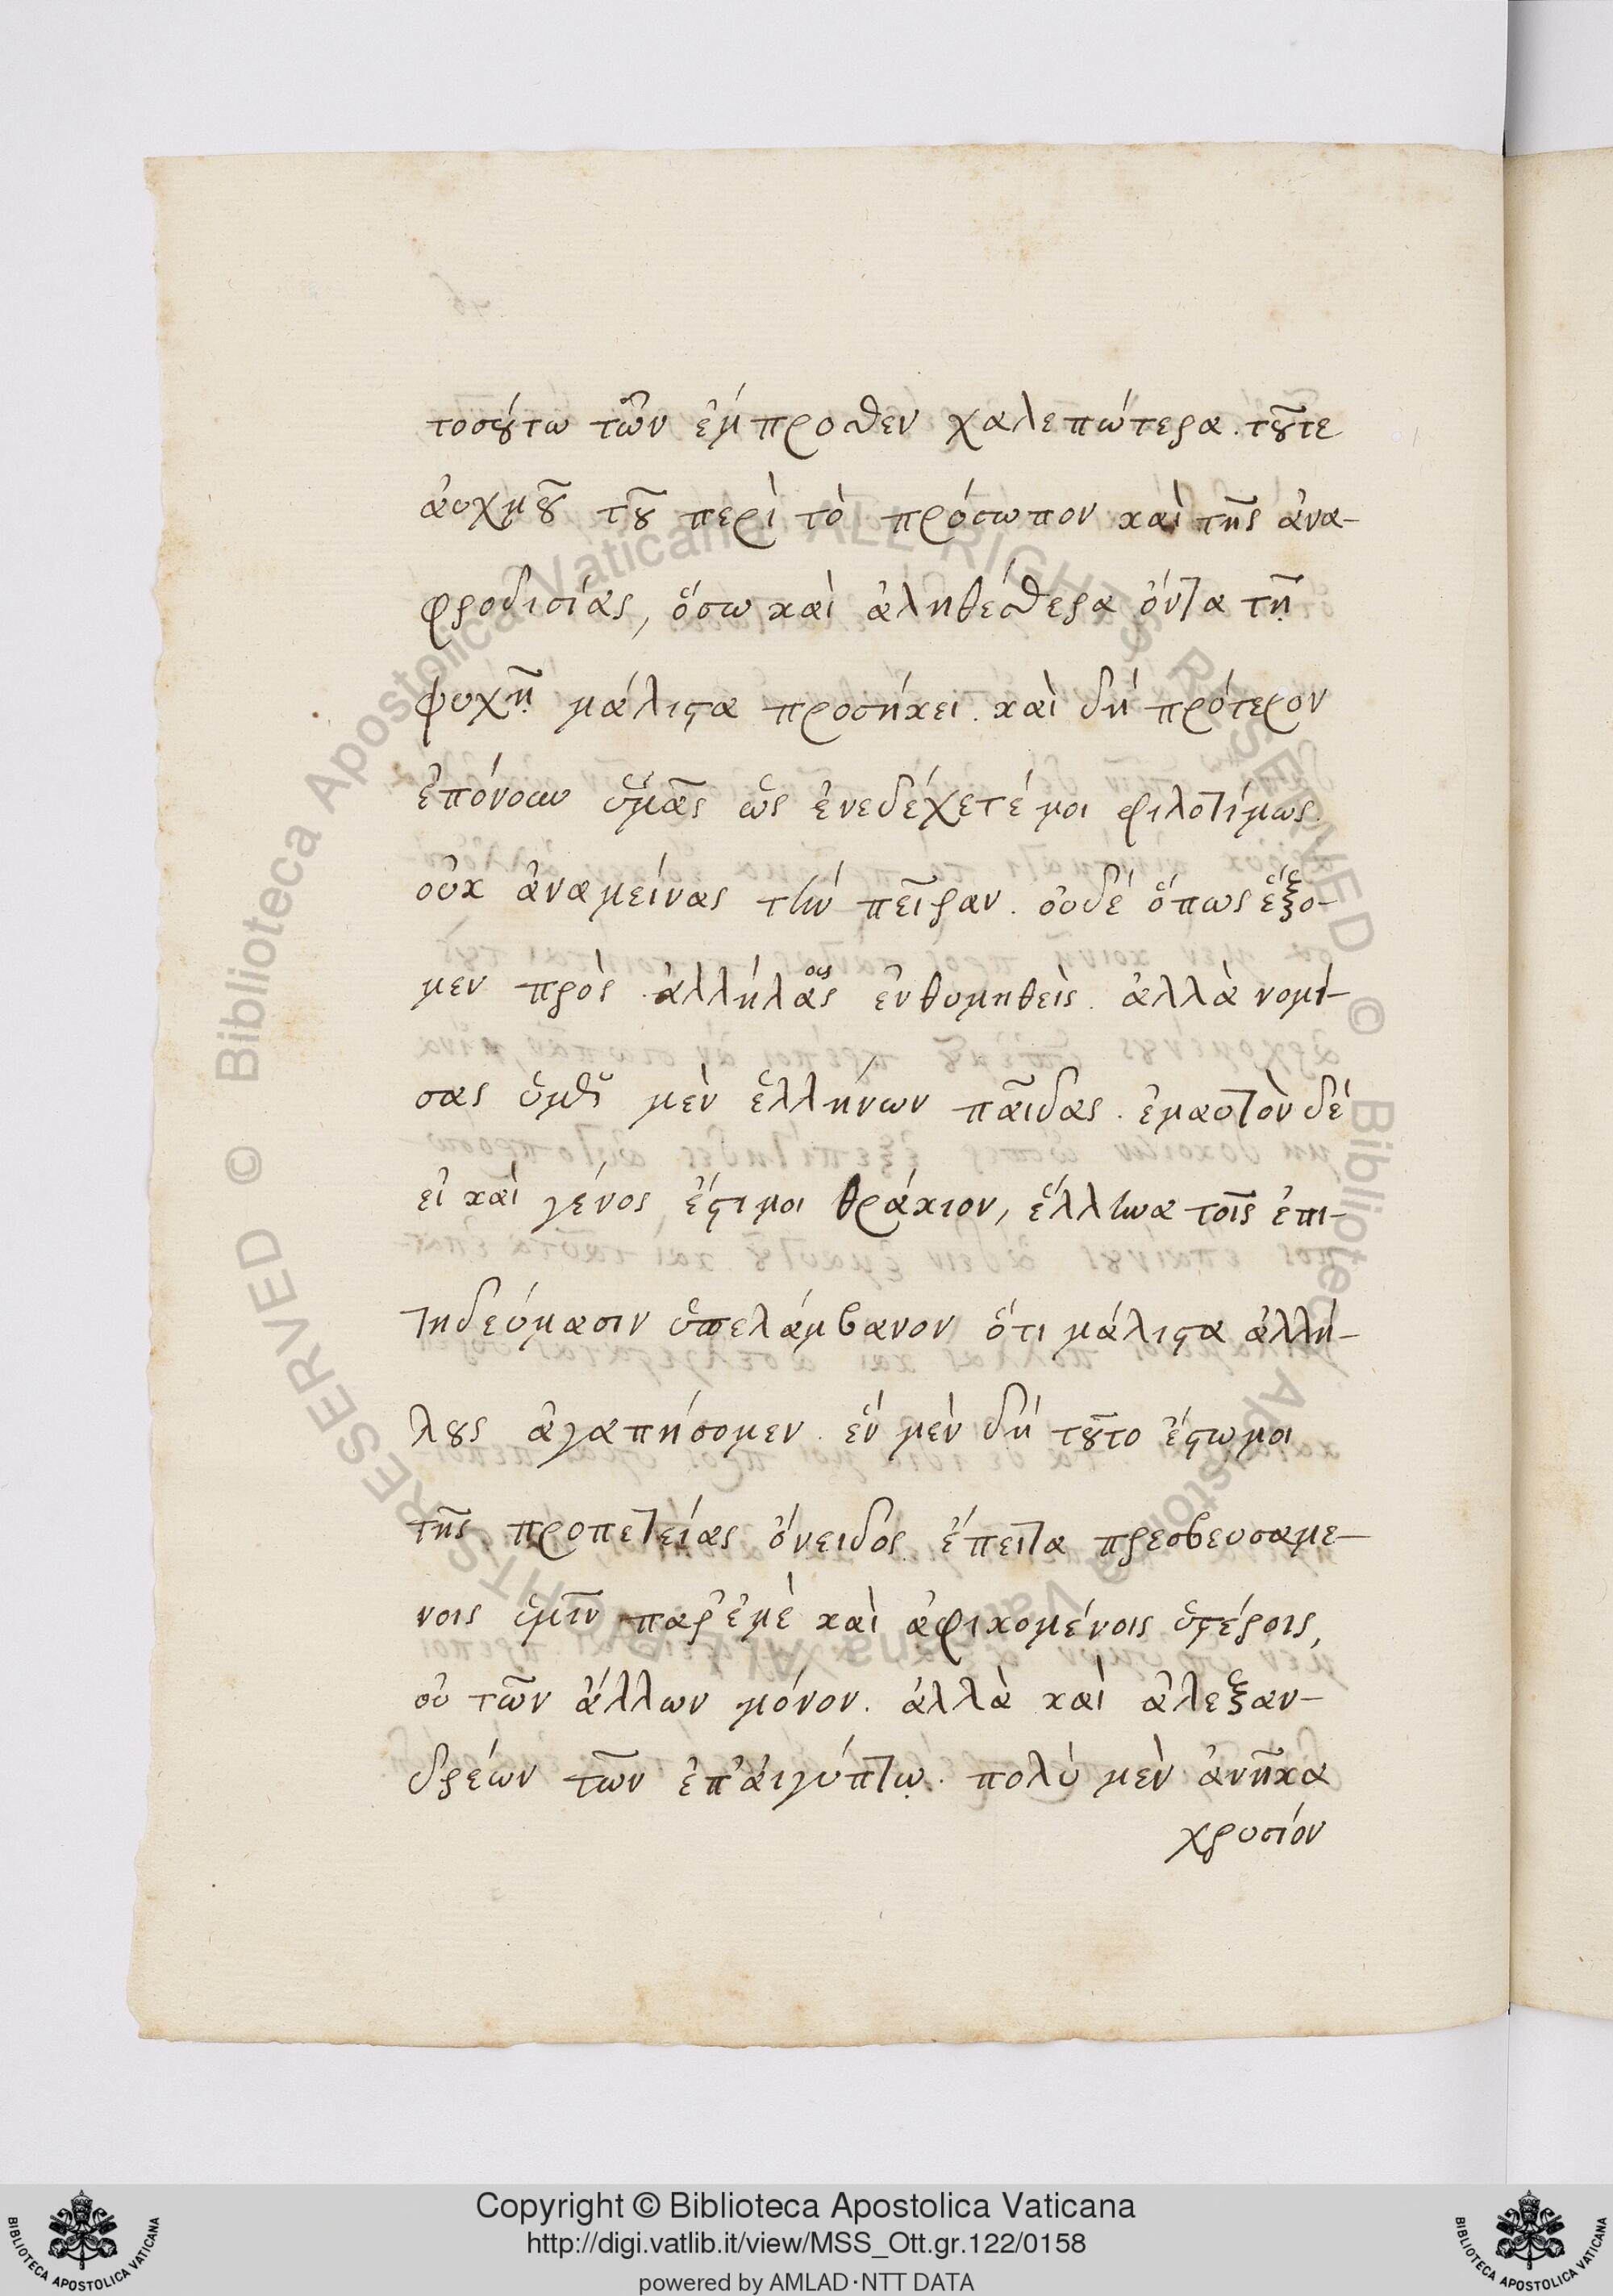 τοσούτω τῶν ἔμπροσθεν χαλεπώτερα. τοῦτε
ἀυχμοῦ τοῦ περὶ τὸ πρόσωπον καὶ τῆς ἀνα-
φροδισίας, ὅσω καὶ ἀληθέστερα ὄντα τῆ
ψυχῆ μάλιστα προσήκει. καὶ δὴ πρότερον
ἐπῄνουν ὑμᾶς ὡς ἐνεδέχετέ μοι φιλοτίμως.
οὐκ ἀναμείνας τὴν πεῖραν. οὐδὲ ὅπως ἕξο-
μεν πρὸς ἀλλήλους ἐνθυμηθεὶς. ἀλλὰ νομί-
σας ὑμᾶς μὲν ἑλλήνων παῖδας. ἐμαυτὸν δὲ
εἰ καὶ γένος ἔστιμοι θράκιον, ἕλληνα τοῖς ἐπι-
τηδεύμασιν ὑπελάμβανον ὅτι μάλιστα ἀλλή-
λους ἀγαπήσομεν. ἓν μὲν δὴ τοῦτο ἔστωμοι
τῆς προπετείας ὄνειδος. ἔπειτα πρεσβευσαμέ-
νοις ὑμῖν παρ' ἐμὲ καὶ ἀφικομένοις ὑστέροις,
οὐ τῶν ἄλλων μόνον. ἀλλὰ καὶ ἀλεξαν-
δρέων τῶν ἐπ' ἀιγύπτω. πολὺ μὲν ἀνῆκα
χρυσίον
Copyright © Biblioteca Apostolica Vaticana
http://digi.vatlib.it/view/MSS_Ott.gr.122/0158
powered by AMLAD·NTT DATA